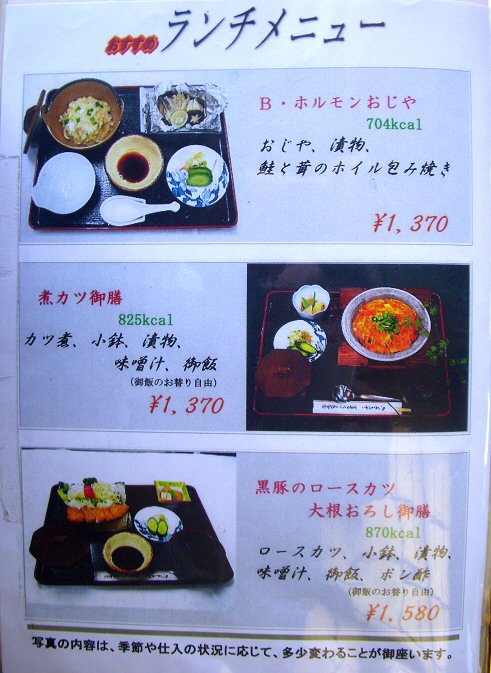 おすすめ ランチメニュー
B・ホルモンおじや
704kcal
おじや、漬物、
鮭と茸のホイル包み焼き
¥1,370
煮カツ御膳
825kcal
カツ煮、小鉢、漬物、
味噌汁、御飯
(御飯のお替り自由)
¥1,370
黒豚のロースカツ
大根おろし御膳
870kcal
ロースカツ、小鉢、漬物、
味噌汁、御飯、ポン酢
(御飯のお替り自由)
¥1,580
写真の内容は、季節や仕入の状況に応じて、多少変わることが御座います。